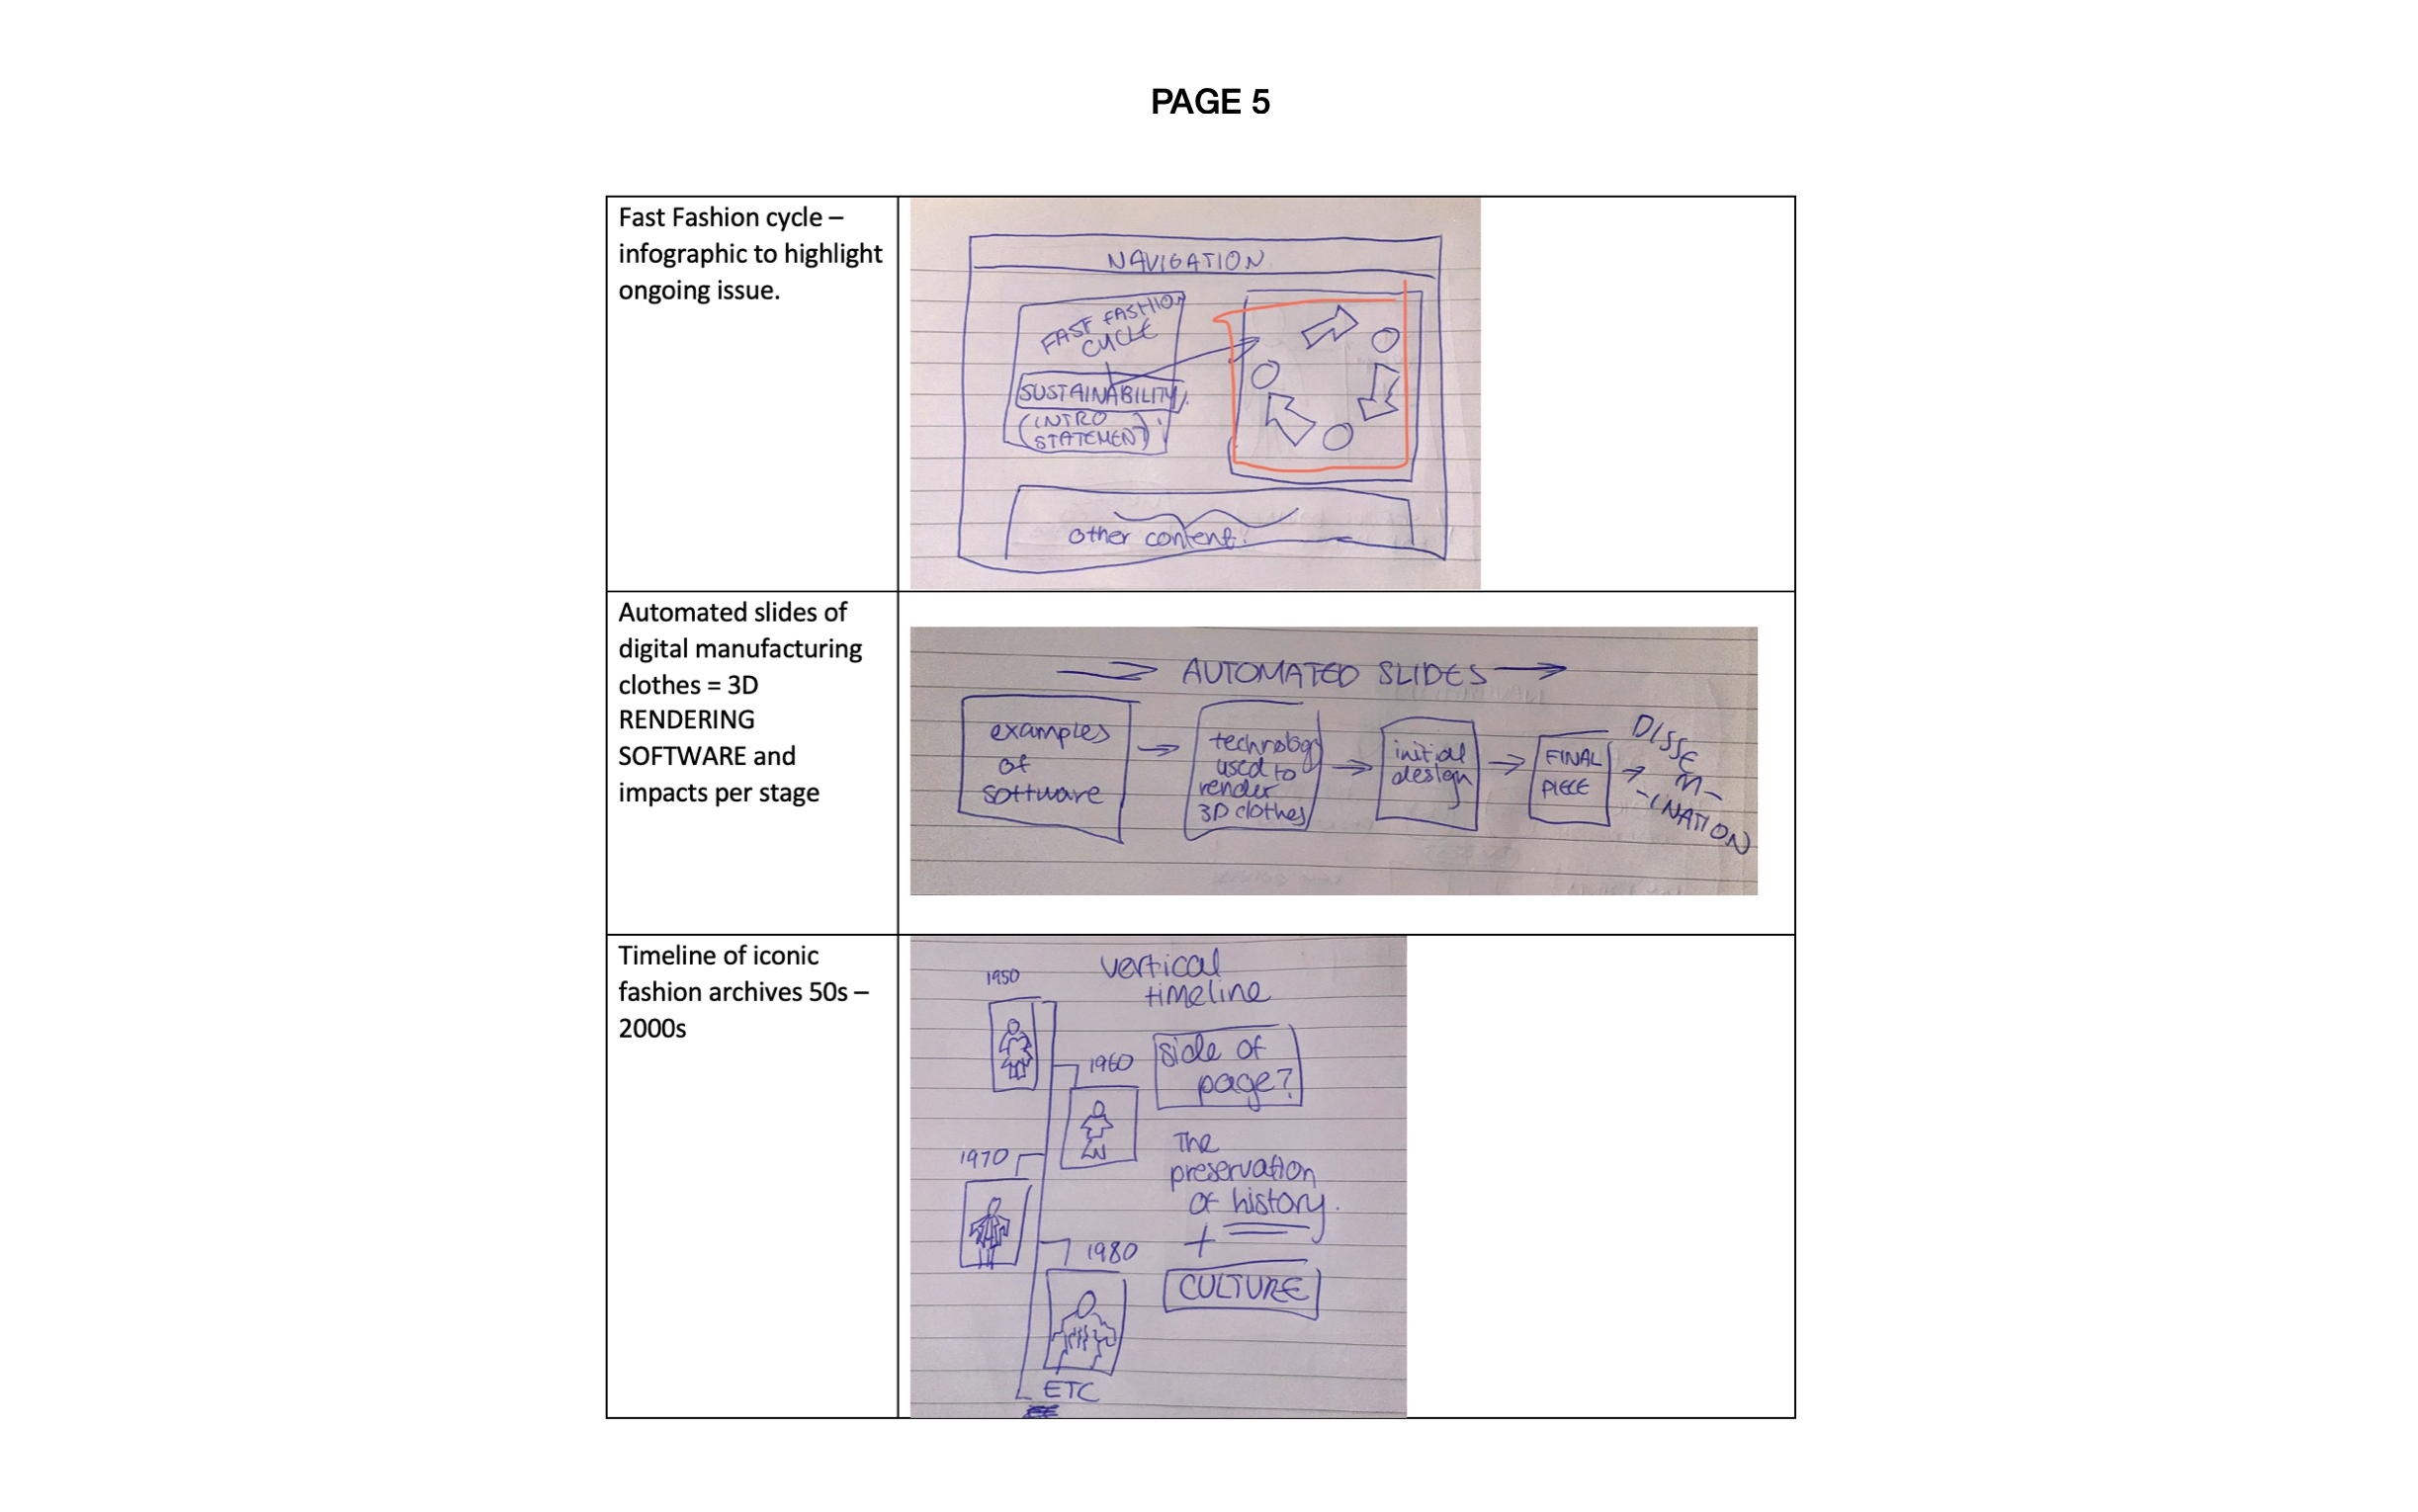 PAGE 5
Fast Fashion cycle –
infographic to highlight
ongoing issue.
NAVIGATION
FAST FASHION
CYCLE
SUSTAINABILITY
(INTRO
STATEMENT)
other content.
Automated slides of
digital manufacturing
clothes = 3D
RENDERING
SOFTWARE and
impacts per stage
AUTOMATED SLIDES
examples
of
software
technology
used to
render
3D clothes
initial
design
FINAL
PIECE
DISSE
M-
-INATION
Timeline of iconic
fashion archives 50s –
2000s
vertical
timeline
1950
1960
side of
page?
1970
The
preservation
of history.
+
1980
CULTURE
ETC